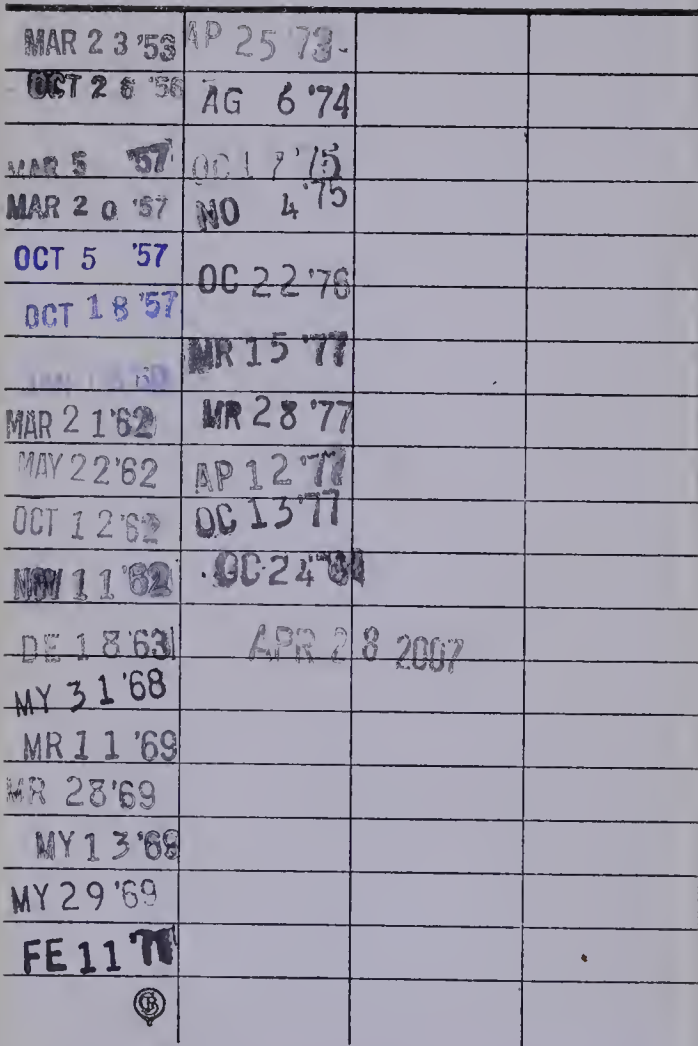 MAR 2 3 '53
OCT 2 6 '56
MAR 5 '57
MAR 2 0 '57
OCT 5 '57
OCT 1 8 '57
MAR 2 1 '62
MAY 2 2 '62
OCT 1 2 '62
NOV 1 1 '62
DE 1 8 '63
MY 3 1 '68
MR 1 1 '69
MR 28 '69
MY 1 3 '69
MY 29 '69
FE 11 '71
AP 25 73
AG 6 '74
OC 1 7 '75
NO 4 '75
OC 22 '76
MR 15 '77
MR 28 '77
AP 12 '77
OC 13 '77
OC 24
APR 2 8 2007